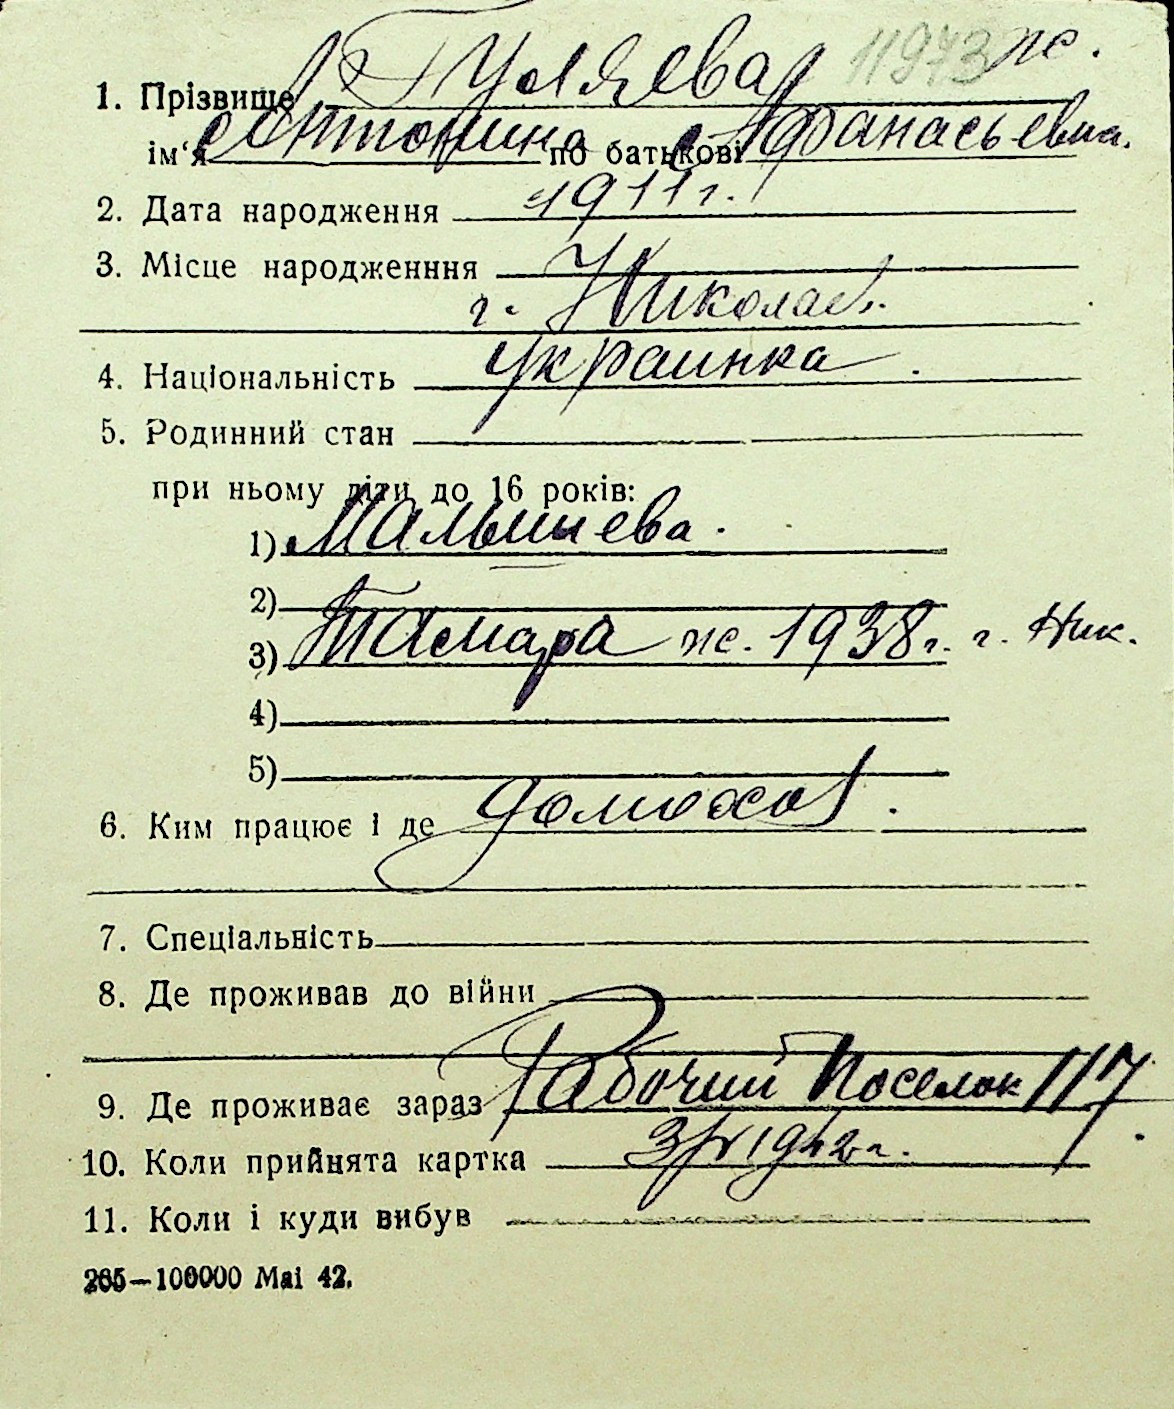 11973
1. Прізвище Гуляева ж.
ім‘я Антонина по батькові Афанасьевна.
2. Дата народження 1911 г.
3. Місце народженння
г. Николаев.
4. Національність украинка.
5. Родинний стан
при ньому діти до 16 років:
1) Малышева.
2)
3) Тамара ж. 1938 г. г. Ник.
4)
5)
6. Ким працює і де домохоз.
7. Спеціальність
8. Де проживав до війни
9. Де проживає зараз Рабочий Поселок 117
10. Коли прийнята картка 1942 г.
11. Коли і куди вибув
265—100000 Mai 42.